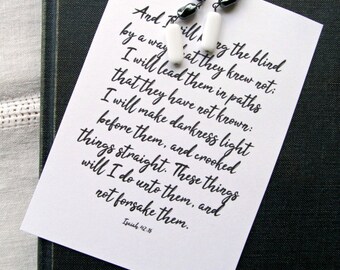 And I will bring the blind
by a way that they knew not;
I will lead them in paths
that they have not known:
I will make darkness light
before them, and crooked
things straight. These things
will I do unto them, and
not forsake them.
Isaiah 42:16